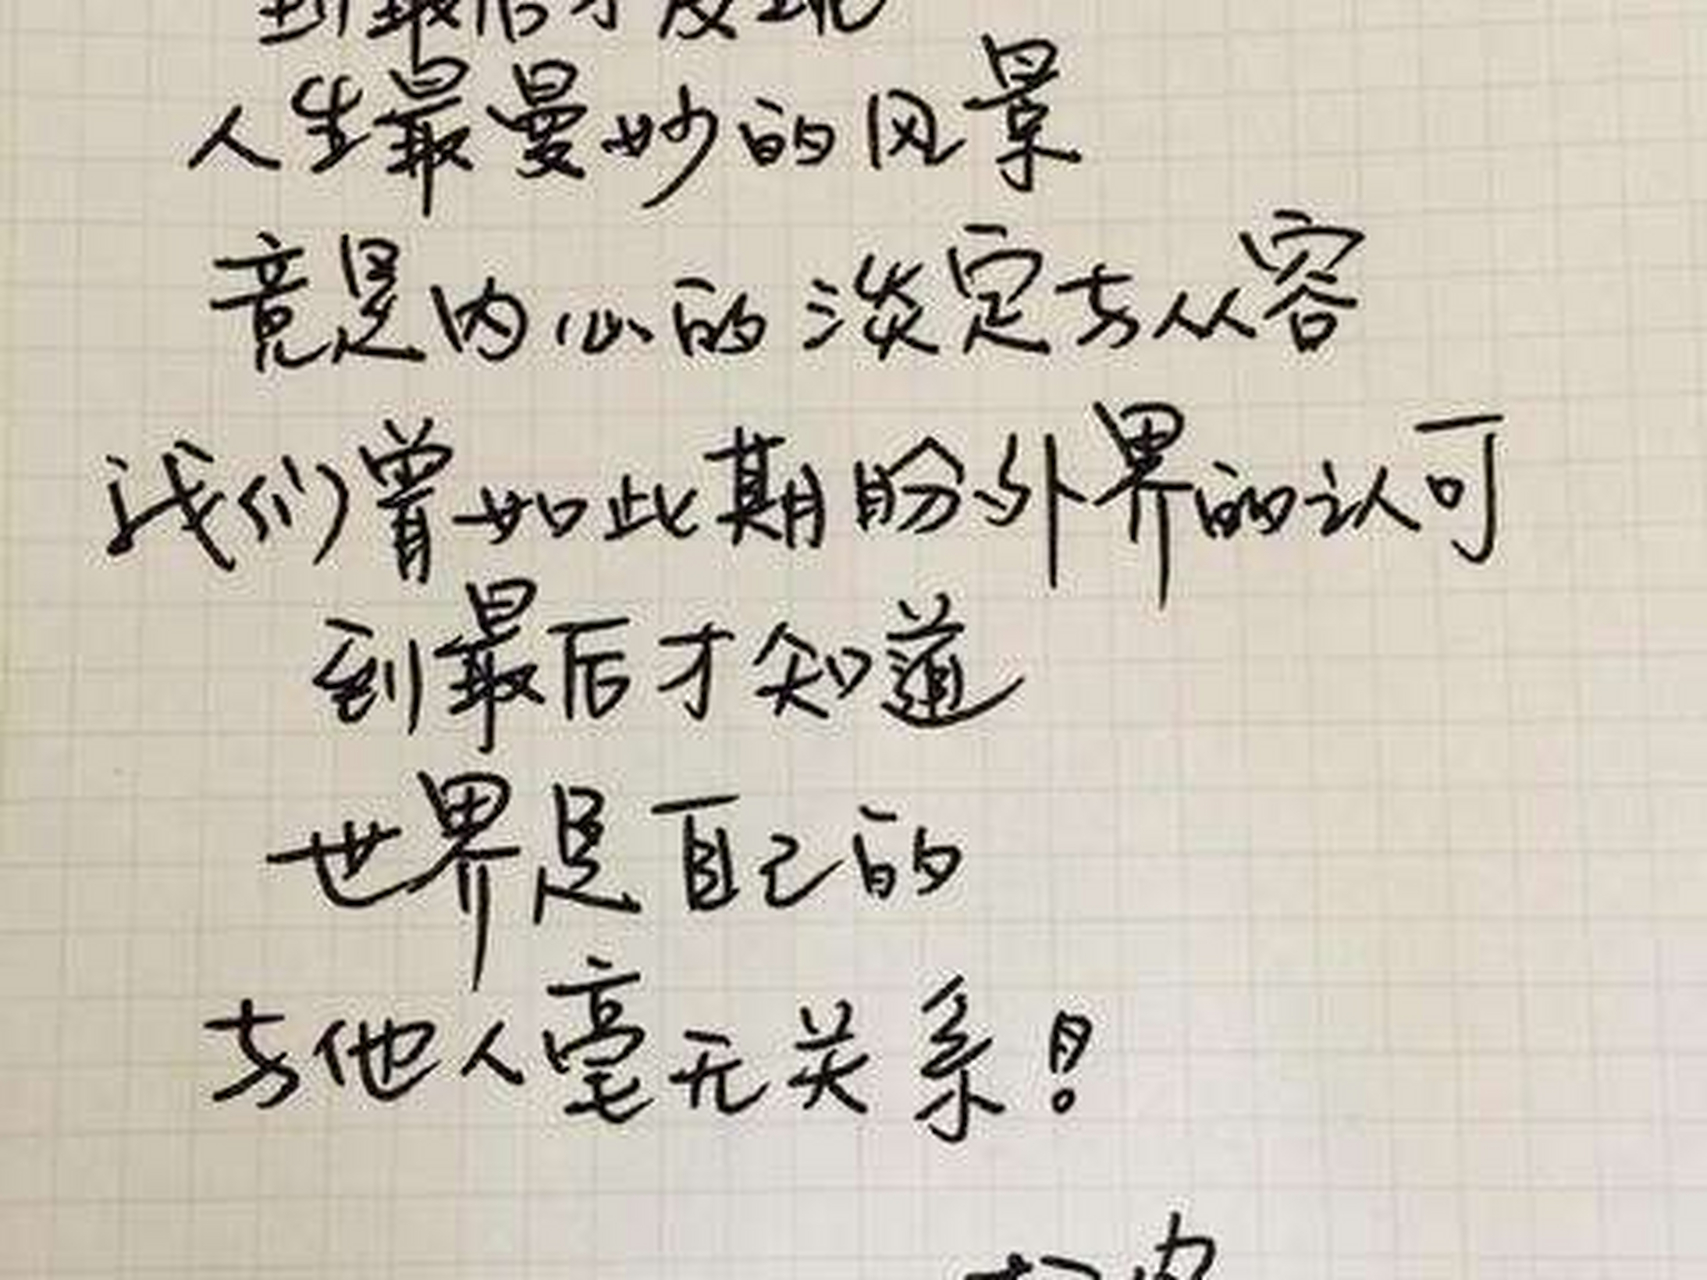 到最后才发现
人生最曼妙的风景
竟是内心的淡定与从容
我们曾如此期盼外界的认可
到最后才知道
世界是自己的
与他人毫无关系!